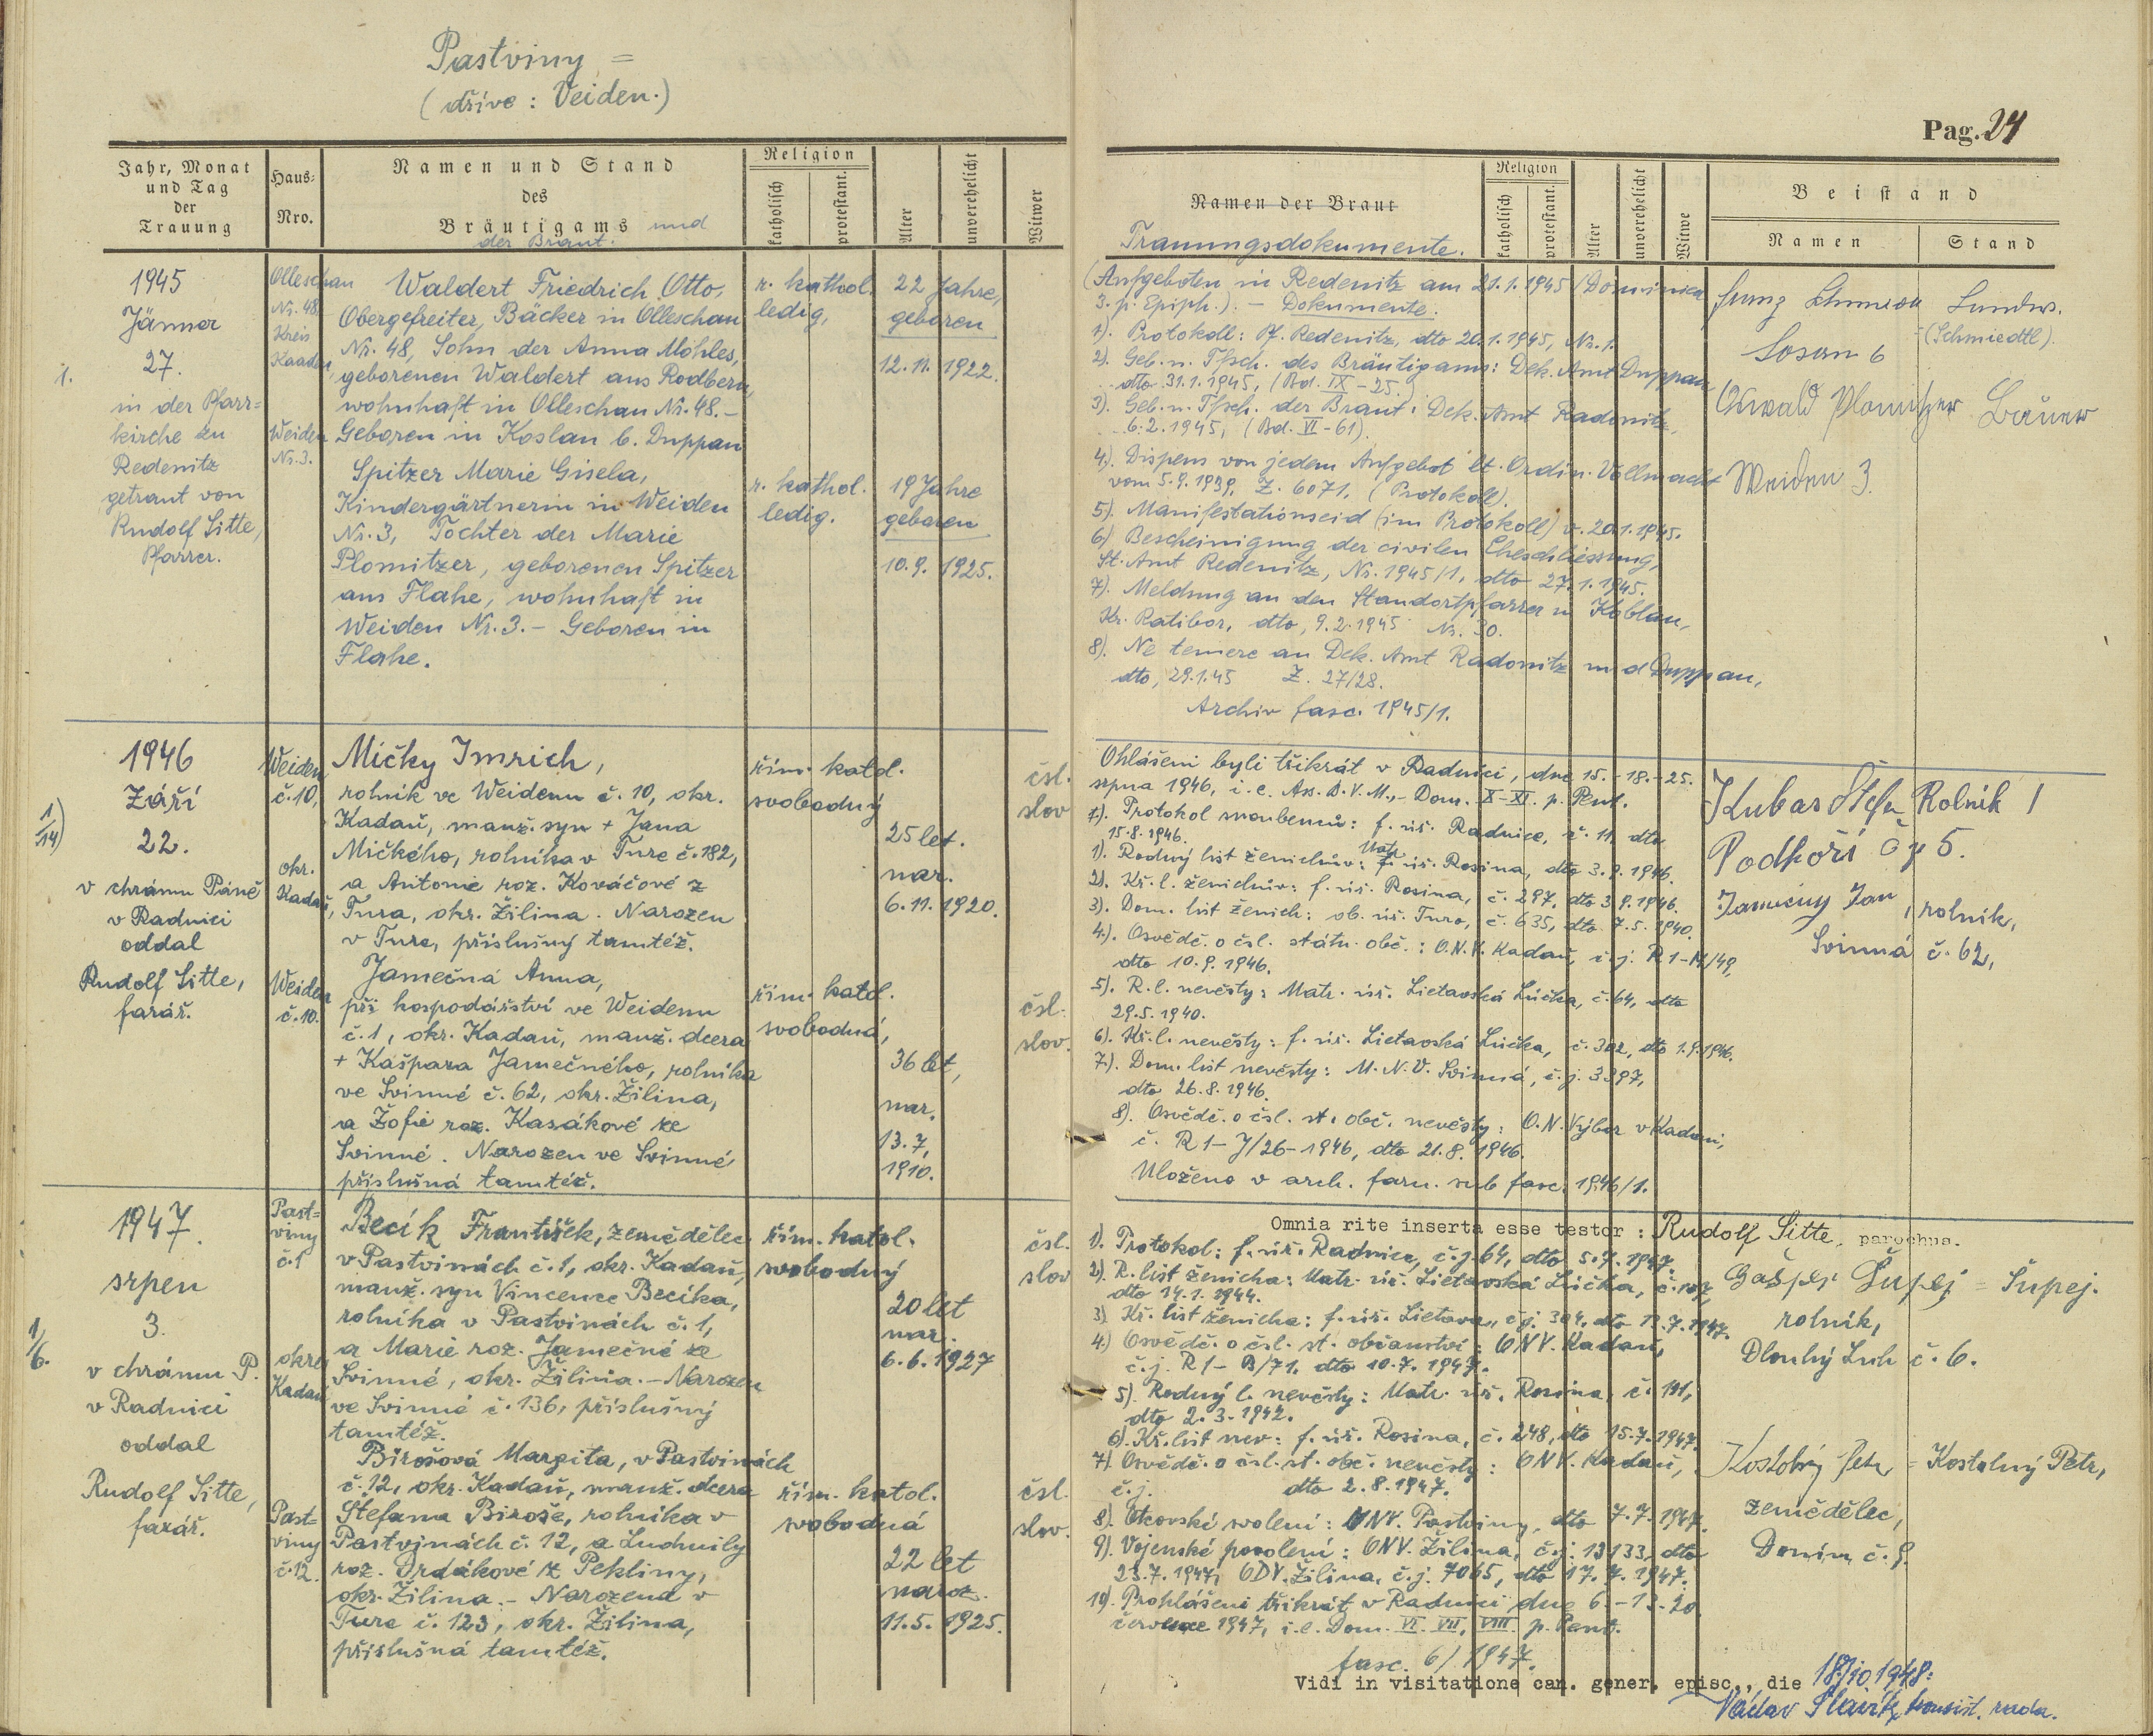 Pastviny =
(dříve: Veiden.)
Jahr, Monat
und Tag
der
Trauung
Haus-
Nro.
Namen und Stand
des
Bräutigams und
der Braut.
Religion
katholisch
protestant.
Alter
unverehelicht
Witwer
1945
Jänner
27.
1.
in der Pfarr=
kirche zu
Redenitz
getraut von
Rudolf Sitte,
Pfarrer.
Olleschau
Nr. 48,
Kreis
Kaaden,
Weiden
Nr. 3.
Waldert Friedrich Otto,
Obergefreiter, Bäcker in Olleschau
Nr. 48, Sohn der Anna Möhles,
geborenen Waldert aus Rodbern,
wohnhaft in Olleschau Nr. 48.-
Geboren in Koslau b. Duppau
r. kathol.
ledig,
22 Jahre,
geboren
12.11.1922.
Spitzer Marie Gisela,
Kindergärtnerin in Weiden
Nr. 3, Tochter der Marie
Plomitzer, geborenen Spitzer
aus Flahe, wohnhaft in
Weiden Nr. 3.- Geboren in
Flahe.
r. kathol.
ledig.
19 Jahre
geboren
10.9.1925.
1946
Září
22.
1/14)
v chrámu Páně
v Radnici
oddal
Rudolf Sitte,
farář.
Weiden
č. 10,
okr.
Kadaň,
Weiden
č. 10.
Mičky Imrich,
rolník ve Weidenu č. 10, okr.
Kadaň, manž. syn + Jana
Mičkého, rolníka v Ture č. 182,
a Antonie roz. Kováčové z
Tura, okr. Žilina. Narozen
v Ture, příslušný tamtéž.
řím. katol.
svobodný
25 let.
nar.
6.11.1920.
čsl.
slov
Jamečná Anna,
při hospodářství ve Weidenu
č. 1, okr. Kadaň, manž. dcera
+ Kašpara Jamečného, rolníka
ve Svinné č. 62, okr. Žilina,
a Žofie roz. Kasákové ze
Svinné. Narozen ve Svinné
příslušná tamtéž.
řím. katol.
svobodná,
36 let,
nar.
13.7.
1910.
čsl.
slov.
1947.
srpen
3.
1/6.
v chrámu P.
v Radnici
oddal
Rudolf Sitte,
farář.
Past=
viny
č. 1
okres
Kadaň
Past=
viny
č. 12.
Becík František, zemědělec
v Pastvinách č. 1, okr. Kadaň,
manž. syn Vincence Becíka,
rolníka v Pastvinách č. 1,
a Marie roz. Jamečné ze
Svinné, okr. Žilina.- Narozen
ve Svinné č. 136, příslušný
tamtéž.
řím. katol.
svobodný
20 let
nar.
6.6.1927
čsl.
slov
Birošová Margita, v Pastvinách
č. 12, okr. Kadaň, manž. dcera
Štefana Biroše, rolníka v
Pastvinách č. 12, a Ludmily
roz. Drdákové z Pekliny,
okr. Žilina.- Narozena v
Ture č. 123, okr. Žilina,
příslušná tamtéž.
řím. katol.
svobodná
22 let
naroz.
11.5.1925.
čsl.
slov.
Pag. 24
Namen der Braut
Trauungsdokumente.
Religion
katholisch
protestant.
Alter
unverehelicht
Witwe
Beistand
Namen
Stand
(Aufgeboten in Redenitz am 21.1.1945 (Dominica
3. p. Epiph.).- Dokumente:
1). Protokoll: Pf. Redenitz, dto 20.1.1945, Nr. 1.
2). Geb. u. Tfsch. des Bräutigams: Dek. Amt Duppau
dto 31.1.1945, (Bd. IX - 25.)
3). Geb. u. Tfsch. der Braut: Dek. Amt Radonitz,
6.2.1945, (Bd. VI - 61).
4). Dispens von jedem Aufgebot lt. Ordin. Vollmacht
vom 5.9.1939, Z. 6071. (Protokoll).
5). Manifestationseid (im Protokoll) v. 20.1.1945.
6) Bescheinigung der civilen Eheschliessung,
St. Amt Redenitz, Nr. 1945/1, dto 27.1.1945.
7). Meldung an den Standortpfarrer in Koblau,
Kr. Ratibor, dto, 9.2.1945 Nr. 30.
8). Ne temere an Dek. Amt Radonitz und Duppau,
dto, 29.1.45 Z. 27/28.
Archiv fasc. 1945/1.
Landw.
(Schmiedtl).
6
Oswald Plomitzer Bauer
Weiden 3.
Ohlášeni byli třikrát v Radnici, dne 15.-18.-25.
srpna 1946, i. e. Ass. B. V. M.,- Dom. X-XI. p. Pent.
1). Protokol snoubenců: f. úř. Radnice, č. 11, dto
15.8.1946.
1). Rodný list ženichův: Matr. úř. Rosina, dto 3.9.1946.
2). Kř. l. ženichův: f. úř. Rosina, č. 297, dto 3.9.1946.
3). Dom. list ženich: ob. úř. Turo, č. 635, dto 7.5.1940.
4). Osvědč. o čsl. státn. obč.: O.N.V. Kadaň, č. j. R 1-M/49,
dto 10.9.1946.
5). R. l. nevěsty: Matr. úř. Lietavská Lúčka, č. 64, dto
29.5.1940.
6). Kř. l. nevěsty: f. úř. Lietavská Lúčka, č. 302, dto 1.9.1946.
7). Dom. list nevěsty: M.N.V. Svinná, č. j. 3397,
dto 26.8.1946.
8). Osvědč. o čsl. st. obč. nevěsty: O.N. Výbor v Kadani,
č. R 1-J/26-1946, dto 21.8.1946.
Uloženo v arch. farn. sub fasc. 1946/1.
Kubas Rolník
Podhoří čp 5.
Jan, rolník,
Svinná č. 62,
Omnia rite inserta esse testor: Rudolf Sitte, parochus.
1). Protokol: f. úř. Radnice, č. j. 64, dto 5.7.1947.
2). R. list ženicha: Matr. úř. Lietavská Lúčka,
dto 14.1.1944.
3) Kř. list ženicha: f. úř. Lietava, čj. 304, dto 13.7.1947.
4) Osvědč. o čsl. st. občanství: ONV. Kadaň,
č. j. R 1- B/71. dto 10.7.1947.
5). Rodný l. nevěsty: Matr. úř. Rosina, č. 191,
dto 2.3.1942.
6). Kř. list nev: f. úř. Rosina, č. 248, dto 15.7.1947.
7). Osvědč. o čsl. st. obč. nevěsty: ONV. Kadaň,
č. j. dto 2.8.1947.
8). Otcovské svolení: MNV. Pastviny, dto 7.7.1947.
9). Vojenské povolení: ONV. Žilina, č. j. 13133, dto
23.7.1947, ODV. Žilina, č. j. 7065, dto 17.7.1947.
10). Prohlášeni třikrát v Radnici dne 6.-13.-20.
července 1947, i. e. Dom. VI. VII. VIII. p. Pent.
fasc. 6/1947.
Gašper Šupej = Šupej.
rolník,
Dlouhý Luh č. 6.
Kostolný Petr = Kostolný Petr,
zemědělec,
Donín č. 9.
Vidi in visitatione can. gener. episc., die
Václav Slavík, konsist. rada.